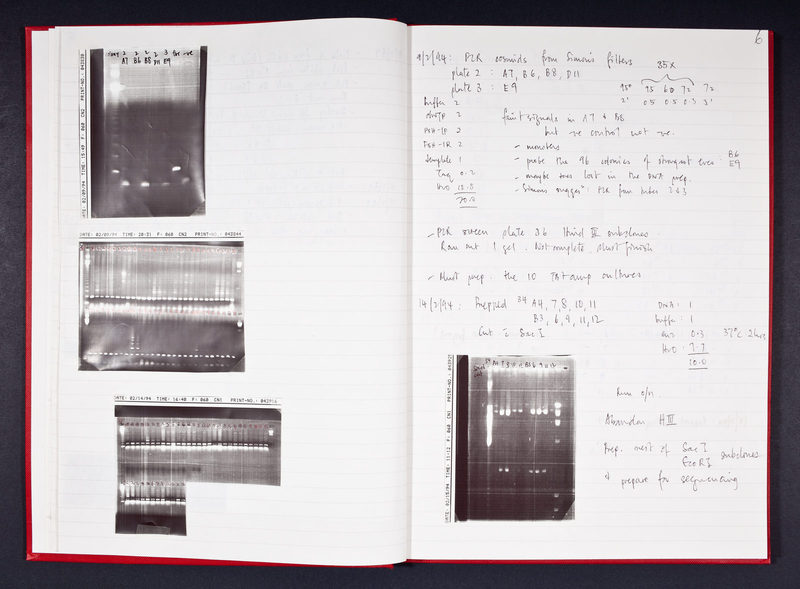 DATE: 02/09/94 TIME: 15:49 F: 060 CN2 PRINT-NO.: 042838
2 2 2 2 3 -ve
A7 B6 B8 D11 E9
DATE: 02/09/94 TIME: 20:21 F: 060 CN2 PRINT-NO.: 042844
DATE: 02/14/94 TIME: 16:40 F: 060 CN1 PRINT-NO.: 042916
6
9/2/94: PCR cosmids from Simon's filters
plate 2 : A7, B6, B8, D11
plate 3 : E9
35x
95° 95 60 72 72
2' 0.5 0.5 0.5 3'
Buffer 2
dNTP 2 faint signals in A7 & B8
2 but -ve control not -ve.
2 - monsters
template 1 - probe the 96 colonies of strongest ones: B6
E9
Taq 0.2 - maybe ones lost in the DNA prep.
H2O 10.8 - Simon's PCR from tubes 2&3
20.0
- PCR screen plate 96 Hind III subclones.
Ran out 1 gel. Not complete. Must finish
- Must prep. the 10 amp cultures
14/2/94: Prepped B4 A4, 7, 8, 10, 11
B3, 6, 9, 11, 12
Cut c Sac I
DNA : 1
buffer : 1
enz : 0.3 37°C 2hrs
H2O : 7.7
10.0
DATE: 02/15/94 TIME: 11:12 F: 060 CN1 PRINT-NO.: 042925
Run o/n
Abandon HIII
Prep. most of Sac I
EcoRI subclones
& prepare for sequencing